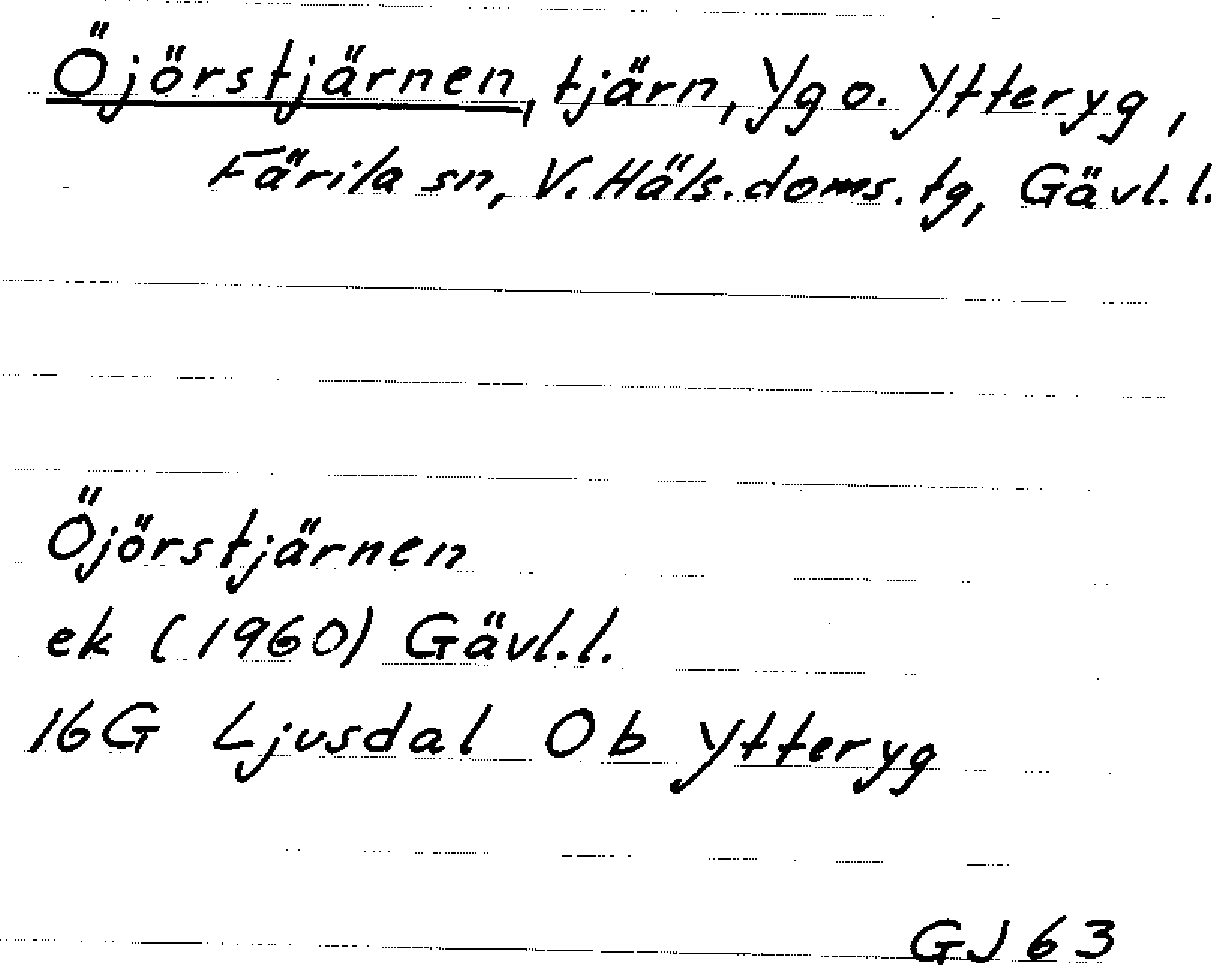 Öjörstjärnen, tjärn, Yg o. Ytteryg,
Färila sn, V. Häls. doms. tg, Gävl. l.
Öjörstjärnen
ek (1960) Gävl. l.
16G Ljusdal 0b Ytteryg
GJ 63